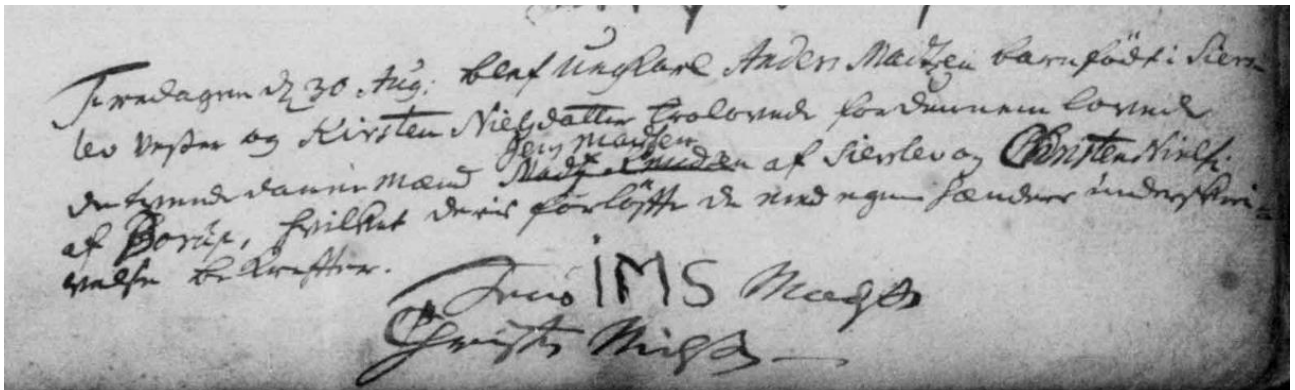 Tirsdagen d 30 Aug: blef Ungkarl Anders Madtzen barnfödt i Siers-
lev Vester og Kirsten Nielsdatter trolovede for dennem lovede
Jens Madtzen
de tvende danne Mænd af Sierslev og Christen Niels:
af Borup, hvilket deris forløfte de med egne hænders underskri-
velse bekrefter.
Jens IMS Madsen
Christen Nielsen